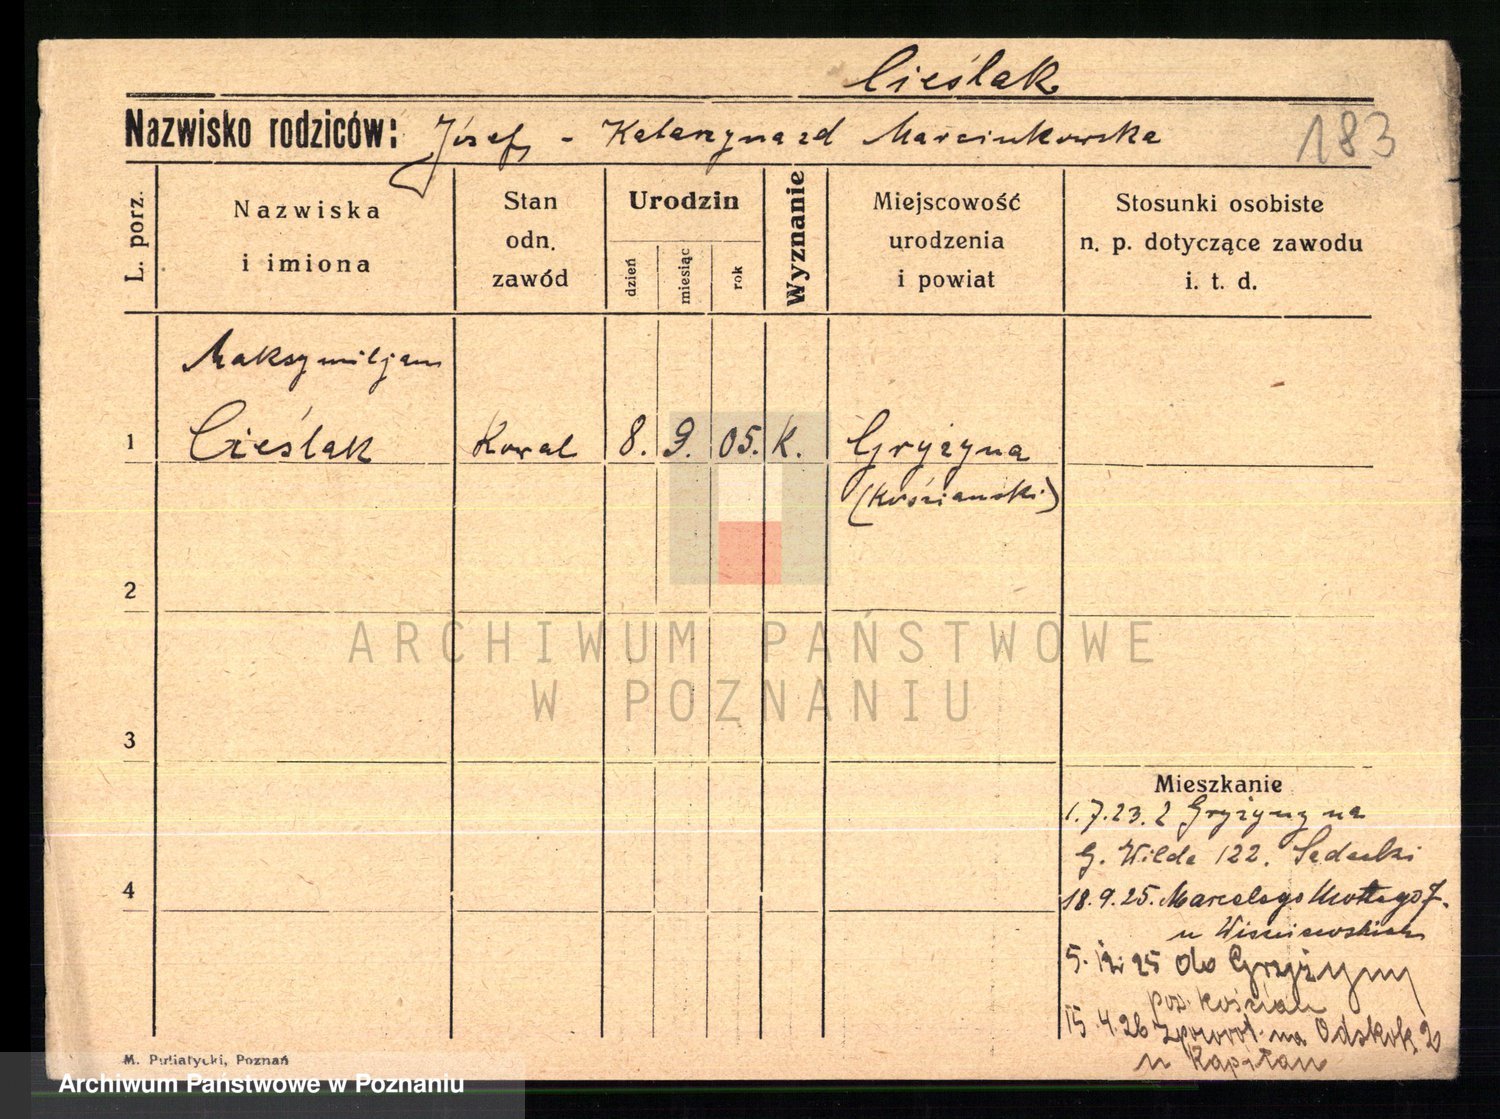 Cieślak
Nazwisko rodziców: Józef - Katarzyna zd Marcinkowska
183
L. porz.
Nazwiska i imiona
Stan odn. zawód
Urodzin
dzień
miesiąc
rok
Wyznanie
Miejscowość urodzenia i powiat
Stosunki osobiste n. p. dotyczące zawodu i. t. d.
Maksymiljan
1 Cieślak Kowal 8. 9. 05. K. Gryżyna
(Kościański)
2
3
4
Mieszkanie
1.7.23. z Gryżyny na
G. Wilda 122.
18.9.25. Marcelego Mottego 7.
u
5. 12. 25 do Gryżyny
pow. Kościan
15.4.26 na
u Kapitan
M. Putiatycki, Poznań
ARCHIWUM PAŃSTWOWE
W POZNANIU
Archiwum Państwowe w Poznaniu